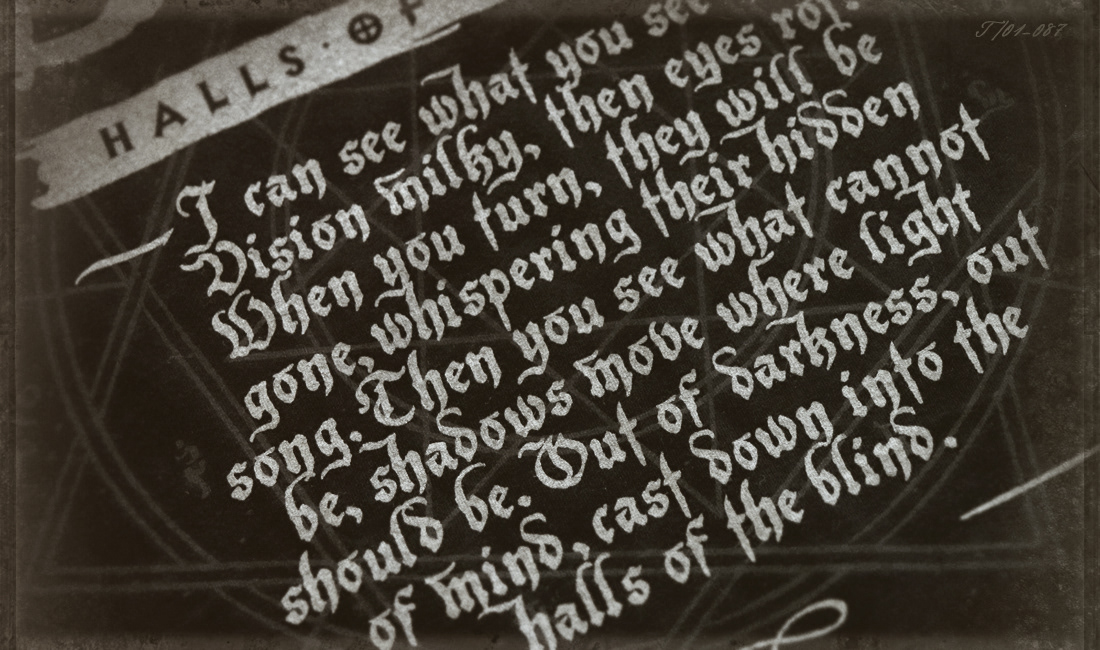 HALLS · OF
T701-087
I can see what you see
Vision milky, then eyes rot.
When you turn, they will be
gone, whispering their hidden
song. Then you see what cannot
be, shadows move where light
should be. Out of darkness, out
of mind, cast down into the
halls of the blind.